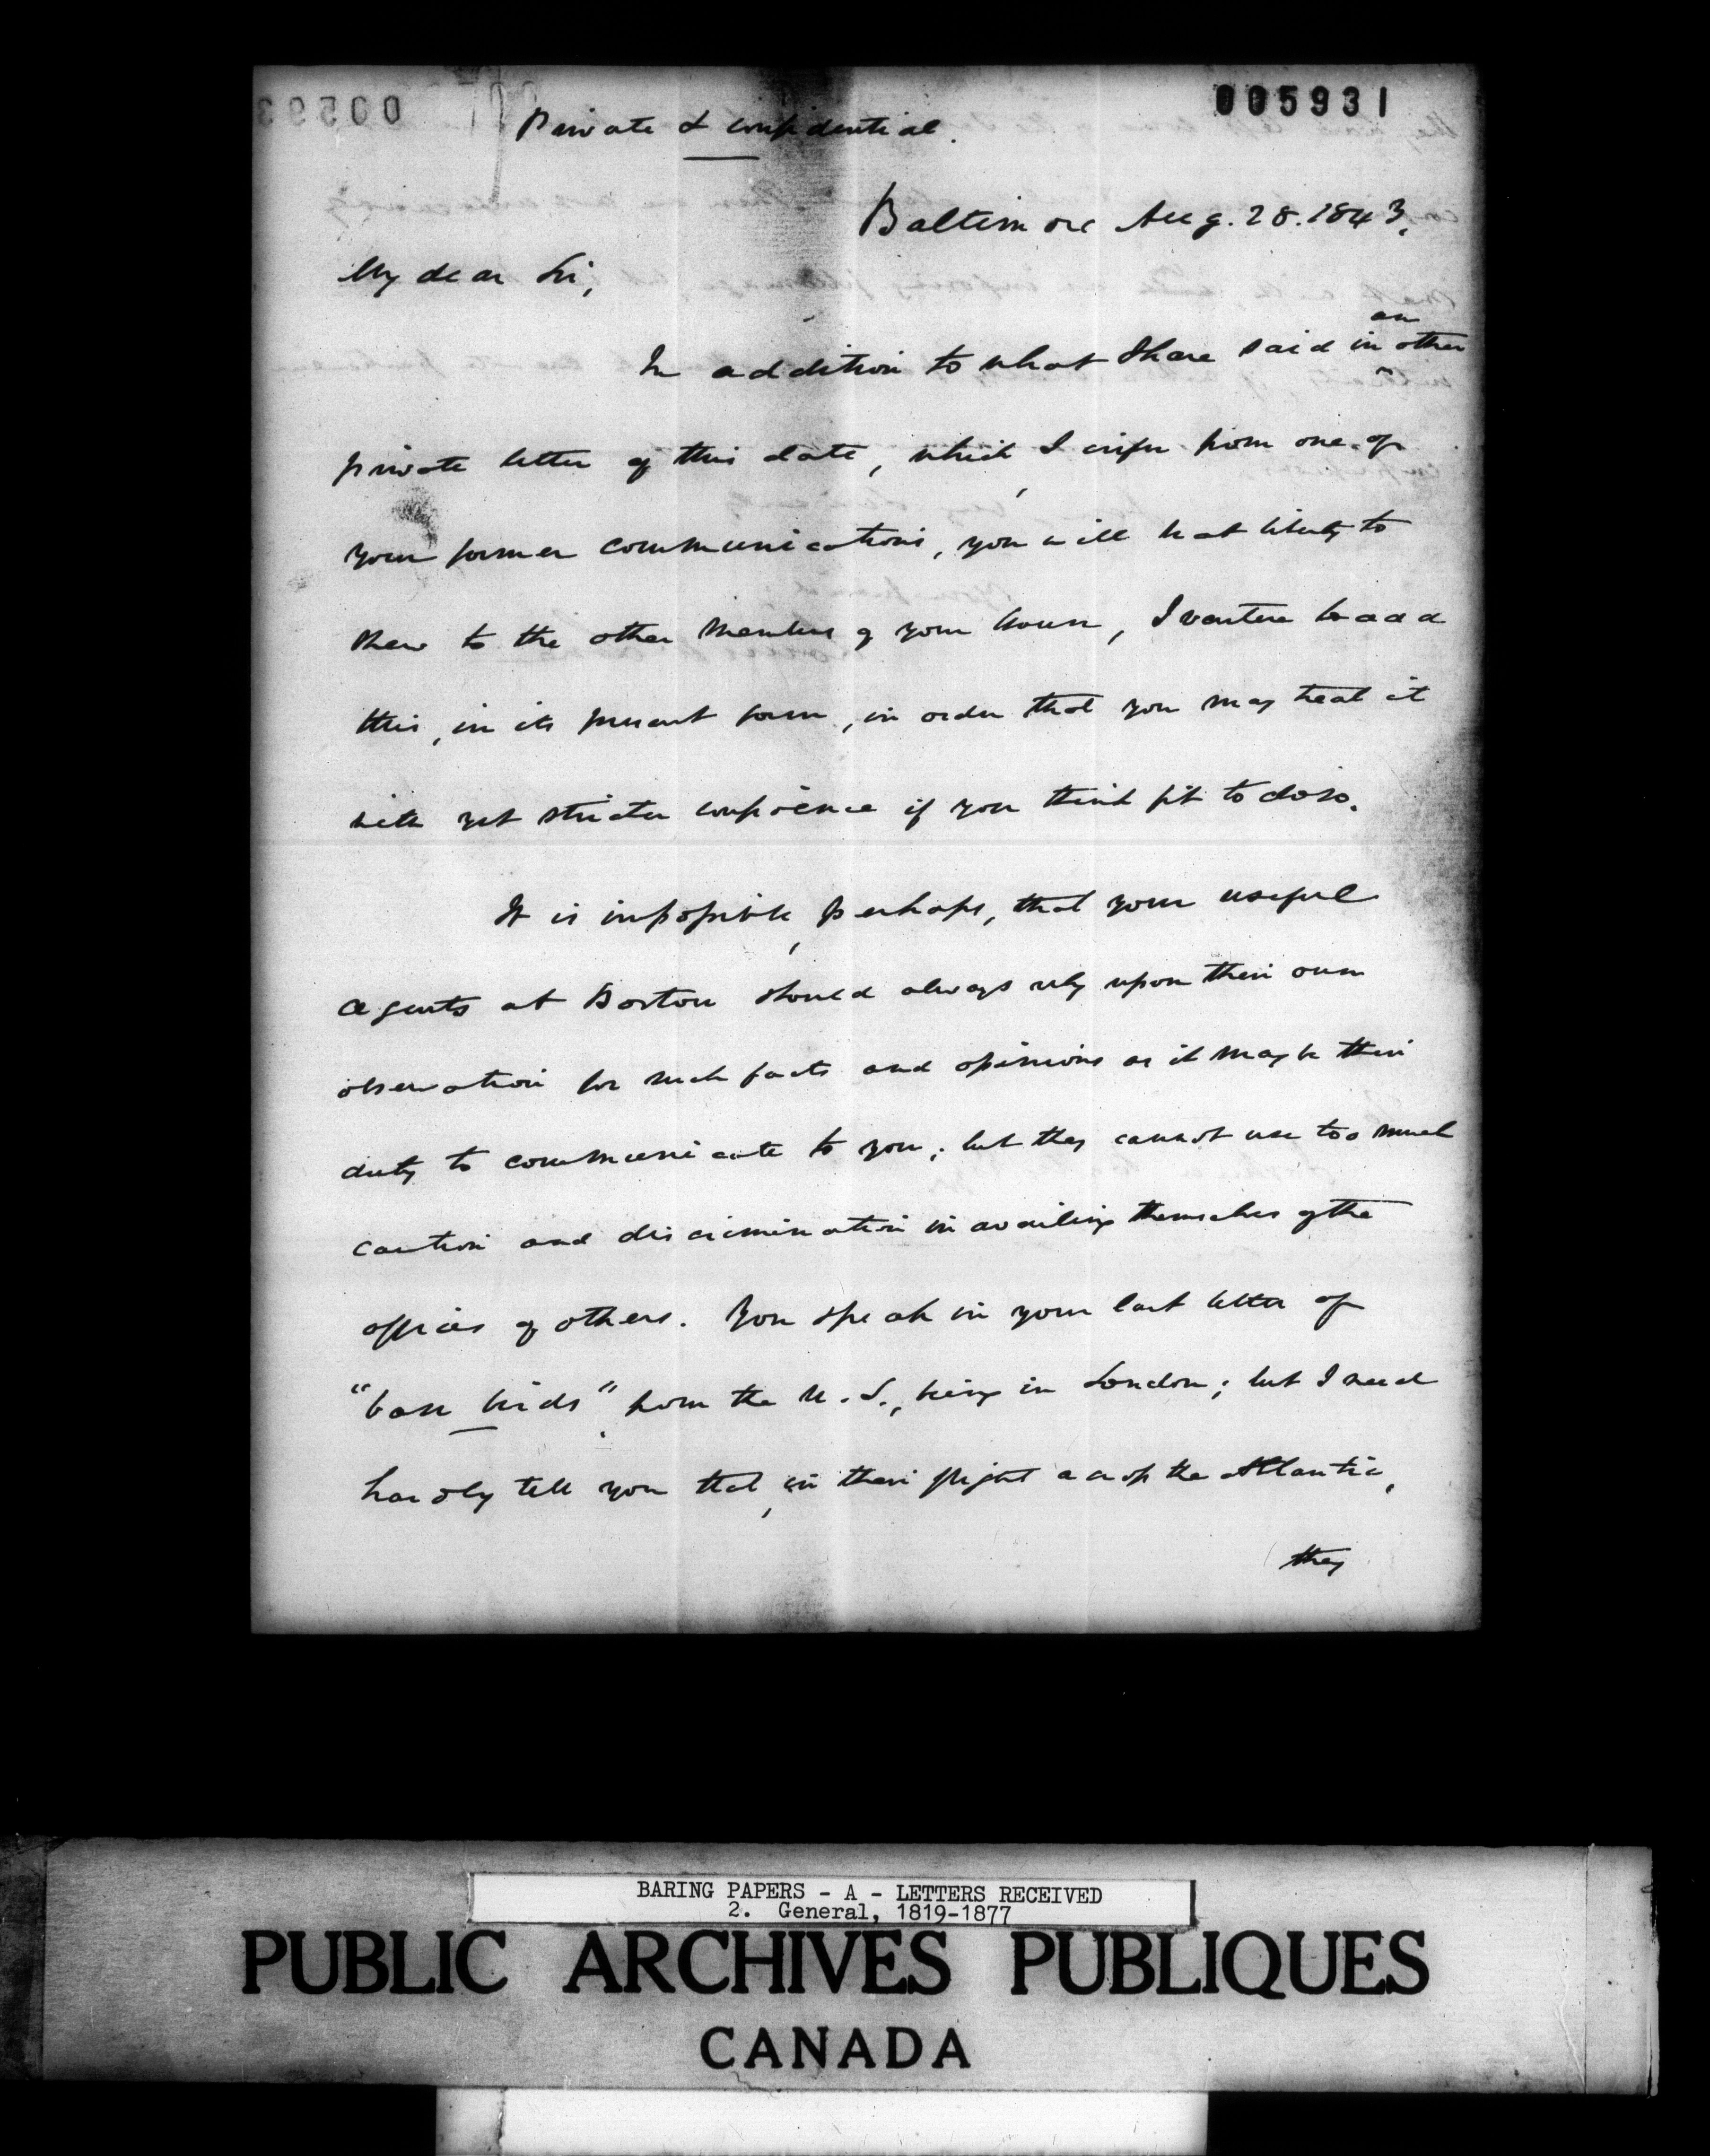 005931
Private & confidential.
Baltimore Aug. 28. 1843.
My dear Sir,
In addition to what I have said in ^an other
private letter of this date, which, I infer from one of
your former communications, you will be at liberty to
shew to the other members of your house, I venture to add
this, in its present form, in order that you may treat it
with yet stricter confidence if you think fit to do so.
It is impossible, perhaps, that your useful
agents at Boston should always rely upon their own
observation for such facts and opinions as it may be their
duty to communicate to you; but they cannot use too much
caution and discrimination in availing themselves of the
offices of others. You speak in your last letter of
"base birds" from the U.S., being in London; but I need
hardly tell you that, in their flight across the Atlantic,
they
BARING PAPERS - A - LETTERS RECEIVED
2. General, 1819-1877
PUBLIC ARCHIVES PUBLIQUES
CANADA